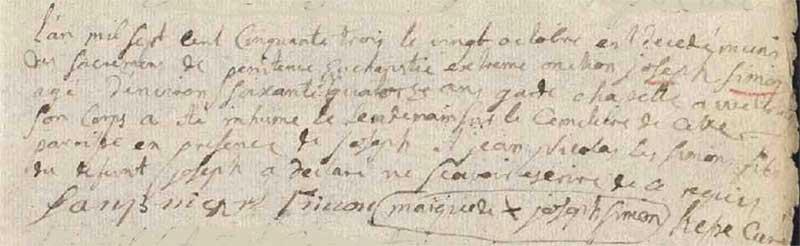 L'an mil sept cent cinquante trois le vingt octobre est decedé muni
des sacremens de penitence Euchapstie extreme onction joseph simon
age d'environ soixante quatorze ans garde chapelle a
son corps a été inhumé le lendemain sur le Cemitiere de cette
paroisse en presence de joseph et jean nicolas les simon fils
du defunt joseph a declaré ne scavoir escrire de ce requis
simon marque de x joseph simon Curé